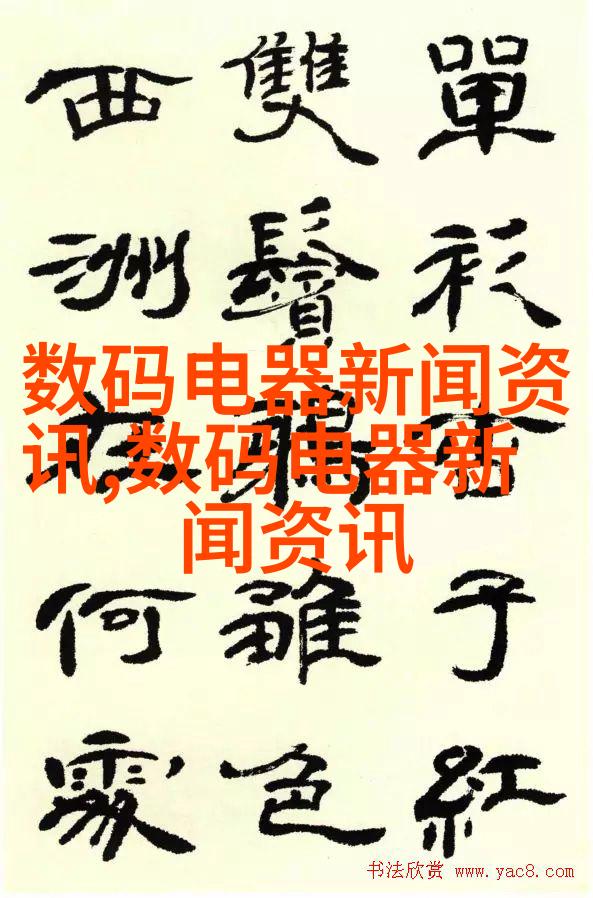 單衫子紅
雙鬢雛色
西洲在何處
数码电器新闻资
讯,数码电器新
闻资讯
书法欣赏 www.yac8.com